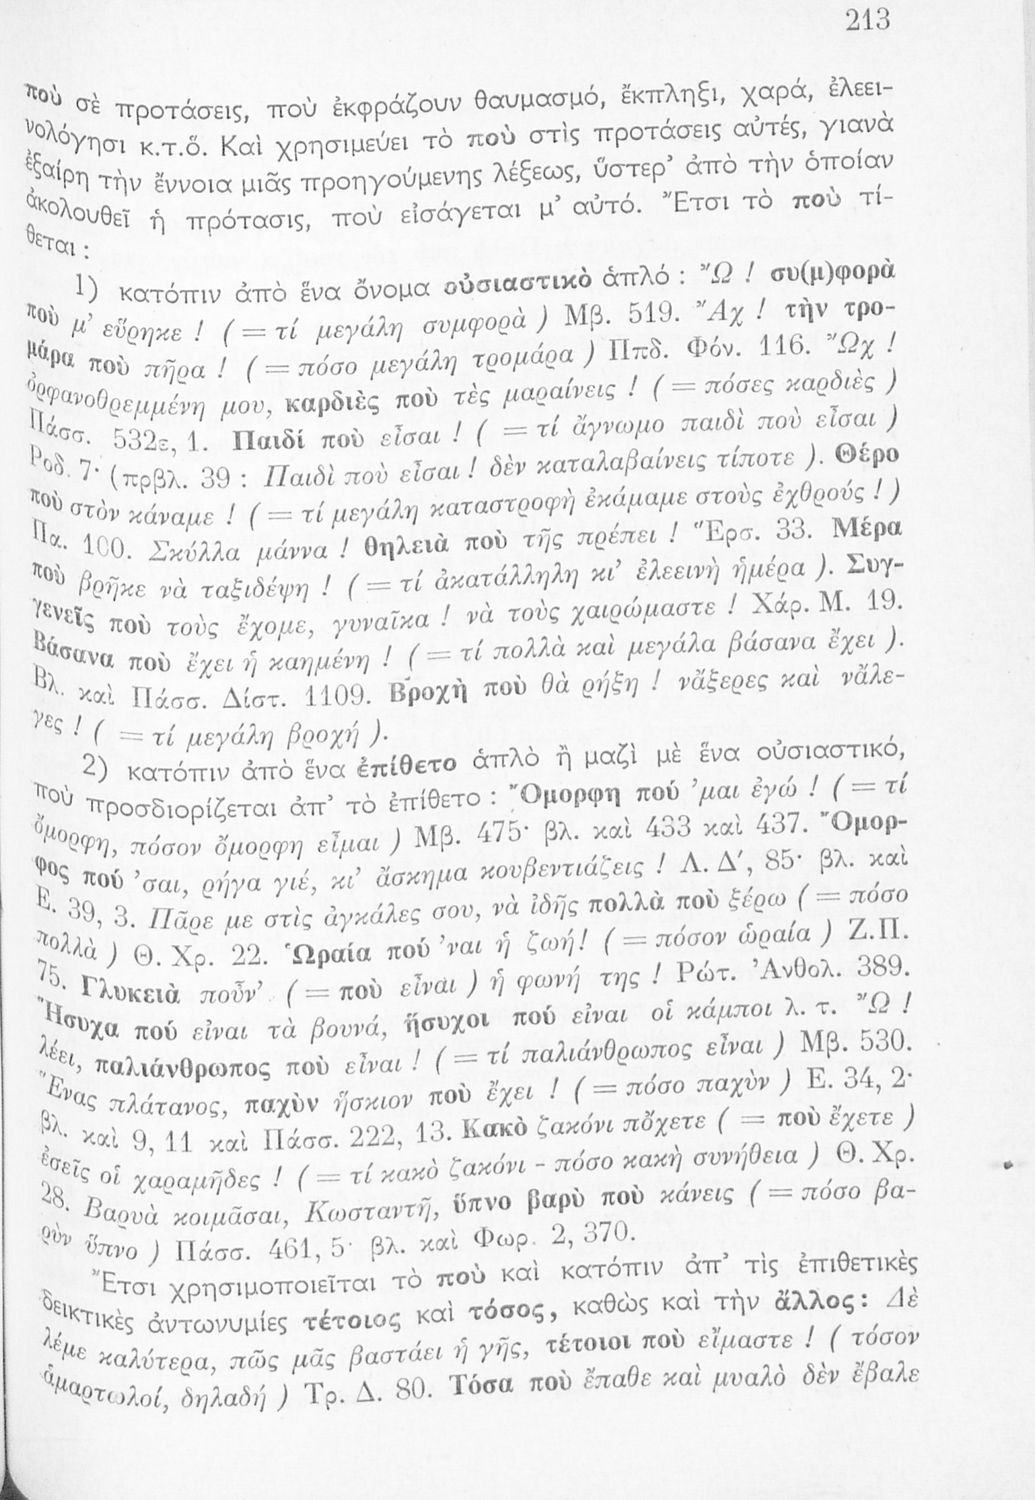 213
ποὺ σὲ προτάσεις, ποὺ ἐκφράζουν θαυμασμό, ἔκπληξι, χαρά, ἐλεει-
νολόγησι κ.τ.ὅ. Καὶ χρησιμεύει τὸ ποὺ στὶς προτάσεις αὐτές, γιανὰ
ἐξαίρη τὴν ἔννοια μιᾶς προηγούμενης λέξεως, ὕστερ’ ἀπὸ τὴν ὁποίαν
ἀκολουθεῖ ἡ πρότασις, ποὺ εἰσάγεται μ’ αὐτό. Ἔτσι τὸ ποὺ τί-
θεται :
1) κατόπιν ἀπὸ ἕνα ὄνομα οὐσιαστικὸ ἁπλό : Ὢ ! συ(μ)φορὰ
ποὺ μ’ εὕρηκε ! ( = τί μεγάλη συμφορὰ ) Μβ. 519. Ἂχ ! τὴν τρο-
μάρα ποὺ πῆρα ! ( = πόσο μεγάλη τρομάρα ) Ππδ. Φόν. 116. Ὢχ !
ὀρφανοθρεμμένη μου, καρδιὲς ποὺ τὲς μαραίνεις ! ( = πόσες καρδιὲς )
Πάσσ. 532ε, 1. Παιδί ποὺ εἶσαι ! ( = τί ἄγνωμο παιδὶ ποὺ εἶσαι )
Ροδ. 7· (πρβλ. 39 : Παιδὶ ποὺ εἶσαι ! δὲν καταλαβαίνεις τίποτε ). Θέρο
ποὺ στὸν κάναμε ! ( = τί μεγάλη καταστροφὴ ἐκάμαμε στοὺς ἐχθρούς ! )
Πα. 100. Σκύλλα μάννα ! θηλειὰ ποὺ τῆς πρέπει ! Ἔρσ. 33. Μέρα
ποὺ βρῆκε νὰ ταξιδέψη ! ( = τί ἀκατάλληλη κι’ ἐλεεινὴ ἡμέρα ). Συγ-
γενεῖς ποὺ τοὺς ἔχομε, γυναῖκα ! νὰ τοὺς χαιρώμαστε ! Χάρ. Μ. 19.
Βάσανα ποὺ ἔχει ἡ καημένη ! ( = τί πολλὰ καὶ μεγάλα βάσανα ἔχει ).
Βλ. καὶ Πάσσ. Δίστ. 1109. Βροχὴ ποὺ θὰ ρήξη ! νἄξερες καὶ νἄλε-
γες ! ( = τί μεγάλη βροχή ).
2) κατόπιν ἀπὸ ἕνα ἐπίθετο ἁπλὸ ἢ μαζὶ μὲ ἕνα οὐσιαστικό,
ποὺ προσδιορίζεται ἀπ’ τὸ ἐπίθετο : Ὄμορφη πού ’μαι ἐγώ ! ( = τί
ὄμορφη, πόσον ὄμορφη εἶμαι ) Μβ. 475· βλ. καὶ 433 καὶ 437. Ὄμορ-
φος πού ’σαι, ρήγα γιέ, κι’ ἄσκημα κουβεντιάζεις ! Λ. Δ′, 85· βλ. καὶ
Ε. 39, 3. Πᾶρε με στὶς ἀγκάλες σου, νὰ ἰδῆς πολλὰ ποὺ ξέρω ( = πόσο
πολλὰ ) Θ. Χρ. 22. Ὡραία πού ’ναι ἡ ζωή! ( = πόσον ὡραία ) Ζ.Π.
75. Γλυκειὰ ποὖν’ ( = ποὺ εἶναι ) ἡ φωνή της ! Ρώτ. Ἀνθολ. 389.
Ἥσυχα πού εἶναι τὰ βουνά, ἥσυχοι πού εἶναι οἱ κάμποι λ. τ. Ὢ !
λέει, παλιάνθρωπος ποὺ εἶναι ! ( = τί παλιάνθρωπος εἶναι ) Μβ. 530.
Ἕνας πλάτανος, παχὺν ἤσκιον ποὺ ἔχει ! ( = πόσο παχὺν ) Ε. 34, 2·
βλ. καὶ 9, 11 καὶ Πάσσ. 222, 13. Κακὸ ζακόνι πὄχετε ( = ποὺ ἔχετε )
ἐσεῖς οἱ χαραμῆδες ! ( = τί κακὸ ζακόνι - πόσο κακὴ συνήθεια ) Θ. Χρ.
28. Βαρυὰ κοιμᾶσαι, Κωσταντῆ, ὕπνο βαρὺ ποὺ κάνεις ( = πόσο βα-
ρὺν ὕπνο ) Πάσσ. 461, 5· βλ. καὶ Φωρ. 2, 370.
Ἔτσι χρησιμοποιεῖται τὸ ποὺ καὶ κατόπιν ἀπ’ τὶς ἐπιθετικὲς
δεικτικὲς ἀντωνυμίες τέτοιος καὶ τόσος, καθὼς καὶ τὴν ἄλλος : Δὲ
λέμε καλύτερα, πῶς μᾶς βαστάει ἡ γῆς, τέτοιοι ποὺ εἴμαστε ! ( τόσον
ἁμαρτωλοί, δηλαδή ) Τρ. Δ. 80. Τόσα ποὺ ἔπαθε καὶ μυαλὸ δὲν ἔβαλε